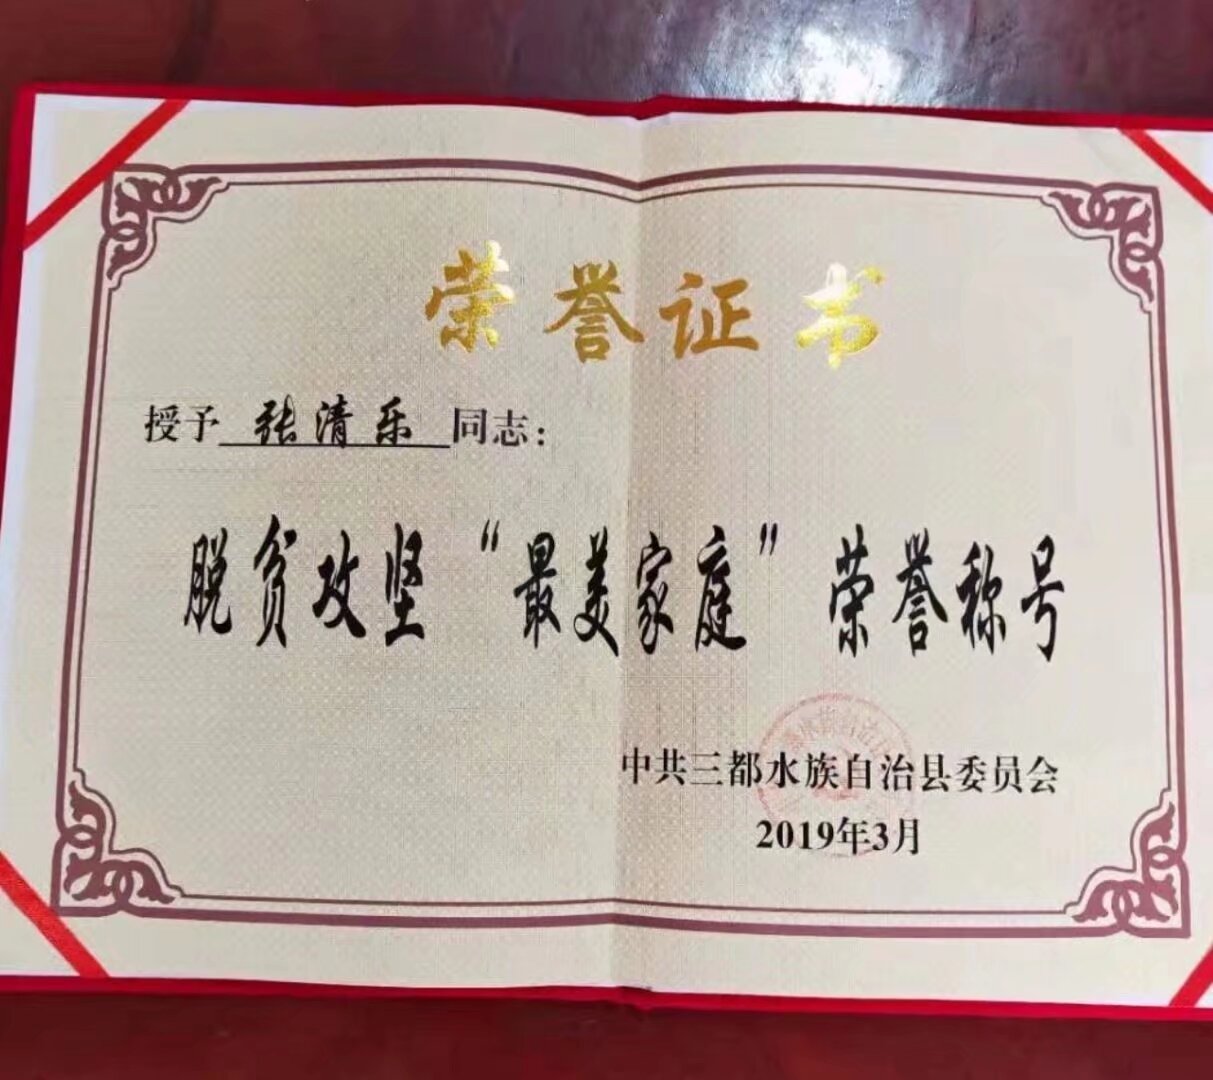 荣誉证书
授予 张清乐 同志：
脱贫攻坚“最美家庭”荣誉称号
中共三都水族自治县委员会
2019年3月